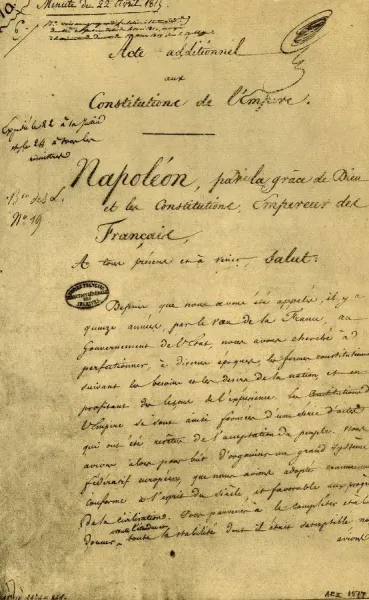 Minute du 22 Avril 1815.
Acte additionnel
aux
Constitutions de l'Empire.
Expédié le 22 à
et le 24, à
ministres
Bin des L.
No 19
Napoléon, par la grâce de Dieu
et les Constitutions, Empereur des
Français,
A tous présens et à venir, Salut:
Depuis que nous avons été appelés, il y a
quinze années, par le vœu de la France, au
Gouvernement de l'Etat, nous avons cherché à
perfectionner, à diverses époques, les formes constitutionnelles
suivant les besoins et les désirs de la nation, et en
profitant des leçons de l'expérience. Les Constitutions de
l'Empire se sont ainsi formées d'une série d'actes
qui ont été revêtus de l'acceptation du peuple. Nous
avions alors pour but d'organiser un grand Système
fédératif européen, que nous avions adopté comme
conforme à l'esprit du Siècle, et favorable aux progrès
de la civilisation. Pour parvenir à le compléter et à lui
donner toute l'étendue et toute la stabilité dont il était susceptible, nous
avions